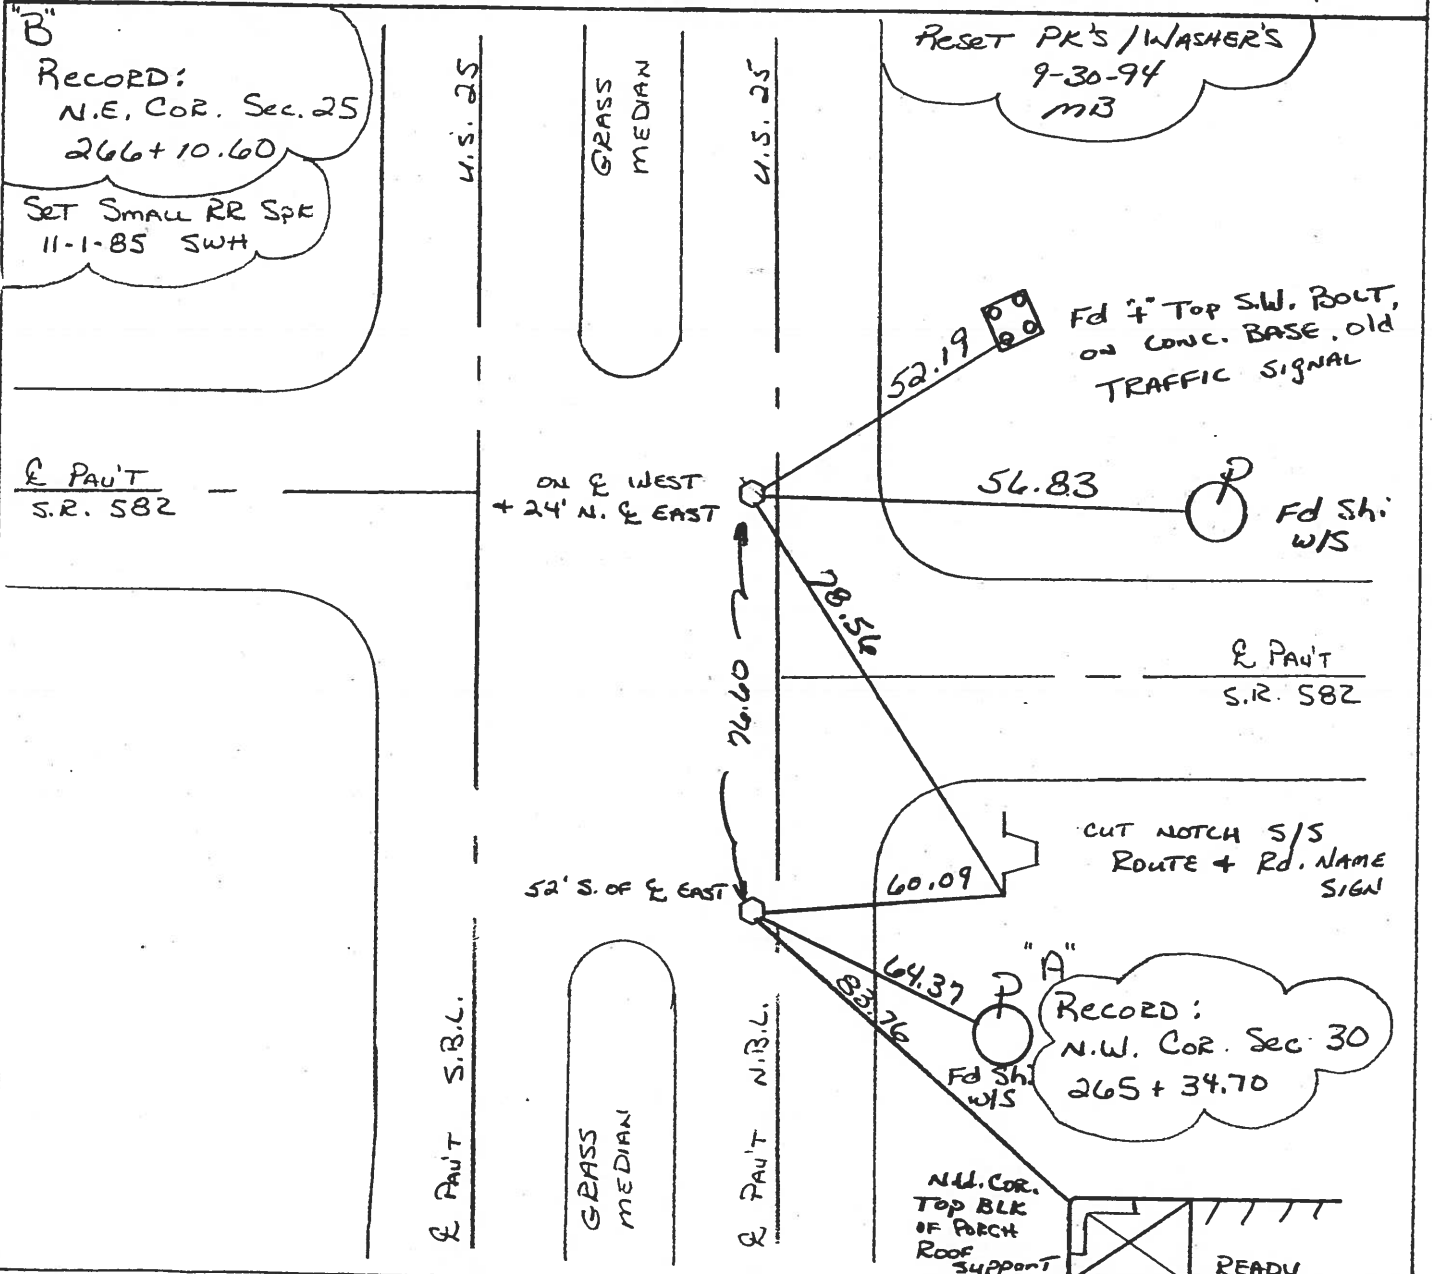 "B"
RECORD:
N.E. COR. Sec. 25
266+10.60
SET SMALL RR SPK
11-1-85 SWH
U.S. 25
GRASS
MEDIAN
U.S. 25
RESET PK'S / WASHER'S
9-30-94
MB
Fd "+" TOP S.W. BOLT,
ON CONC. BASE. Old
TRAFFIC SIGNAL
52.19
℄ PAV'T
S.R. 582
ON ℄ WEST
+ 24' N. ℄ EAST
56.83
Fd Shi
W/S
78.56
76.60
℄ PAV'T
S.R. 582
CUT NOTCH S/S
ROUTE + Rd. NAME
SIGN
52' S. OF ℄ EAST
60.09
64.37
83.76
"A"
RECORD:
N.W. COR. Sec 30
265 + 34.70
Fd Shi
W/S
℄ PAV'T S.B.L.
GRASS
MEDIAN
℄ PAV'T N.B.L.
N.W. COR.
TOP BLK
OF PORCH
ROOF
SUPPORT
READY